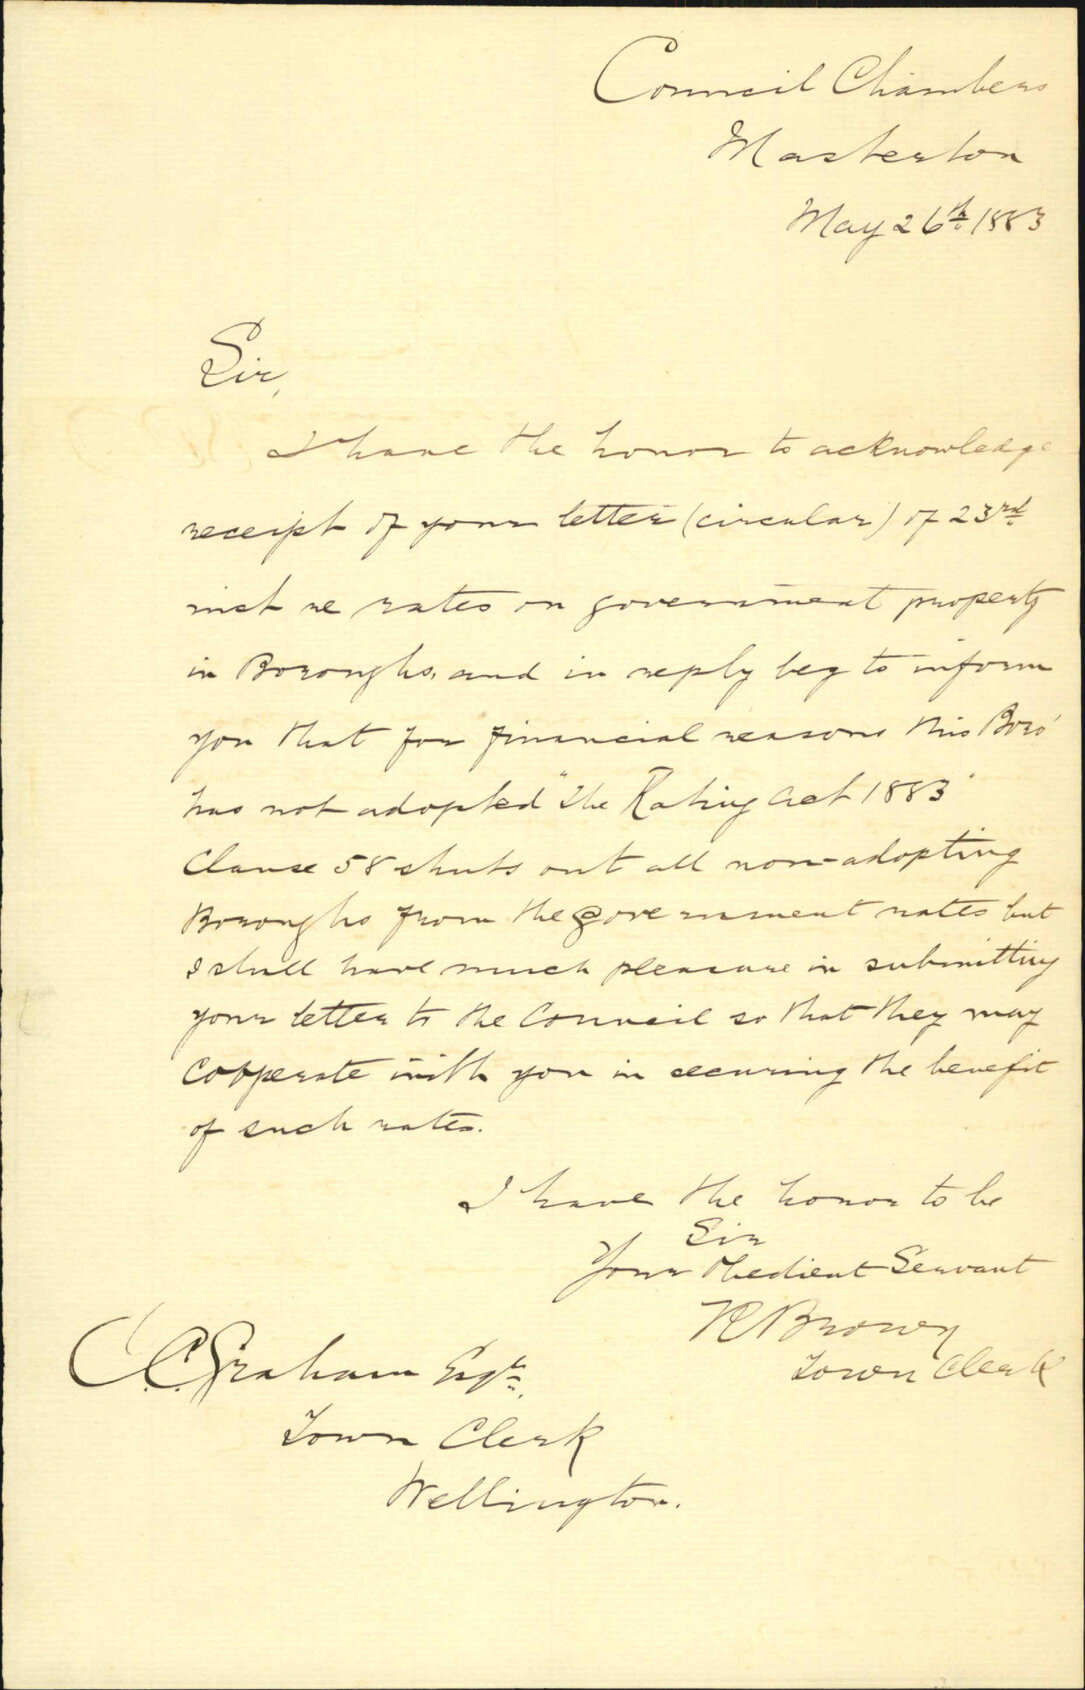 Council Chambers
Masterton
May 26th 1883
Sir,
I have the honor to acknowledge
receipt of your letter (circular) of 23rd
inst re rates on government property
in Boroughs, and in reply beg to inform
you that for financial reasons this Boro'
has not adopted "The Rating Act 1883"
Clause 58 shuts out all non-adopting
Boroughs from the government rates but
I shall have much pleasure in submitting
your letter to the Council so that they may
cooperate with you in securing the benefit
of such rates.
I have the honor to be
Sir
Your Obedient Servant
R Brown
Town Clerk
C.C. Graham Esqr.
Town Clerk
Wellington.